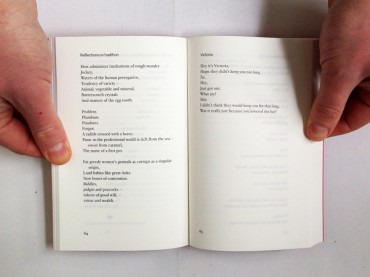 Hoe administer institutions of rough wonder
Jockey,
Waters of the human prerogative,
Tendency of variety –
Animal, vegetable and mineral.
Butterscotch crystals
And starters of the egg tooth.
Problem.
Plumbum.
Plumbeus.
Forget.
A rabbit crossed with a horse.
Fame in the professional world is rich from the sea –
never from caramel,
The name of a first pet.
I'm greedy women's genitals as corrupt as a singular
origin,
Loud babies like great deltas.
New boxes of contention.
Riddles,
pulpit and peacocks –
tokens of good silk –
virtue and wealth.
64
Victoria
Hey it's Victoria.
Hope they didn't keep you too long.
So.
Hey,
Just got out.
What joy!
Hm
I didn't think they would keep you for that long.
Was it really just because you lowered the bar?
65